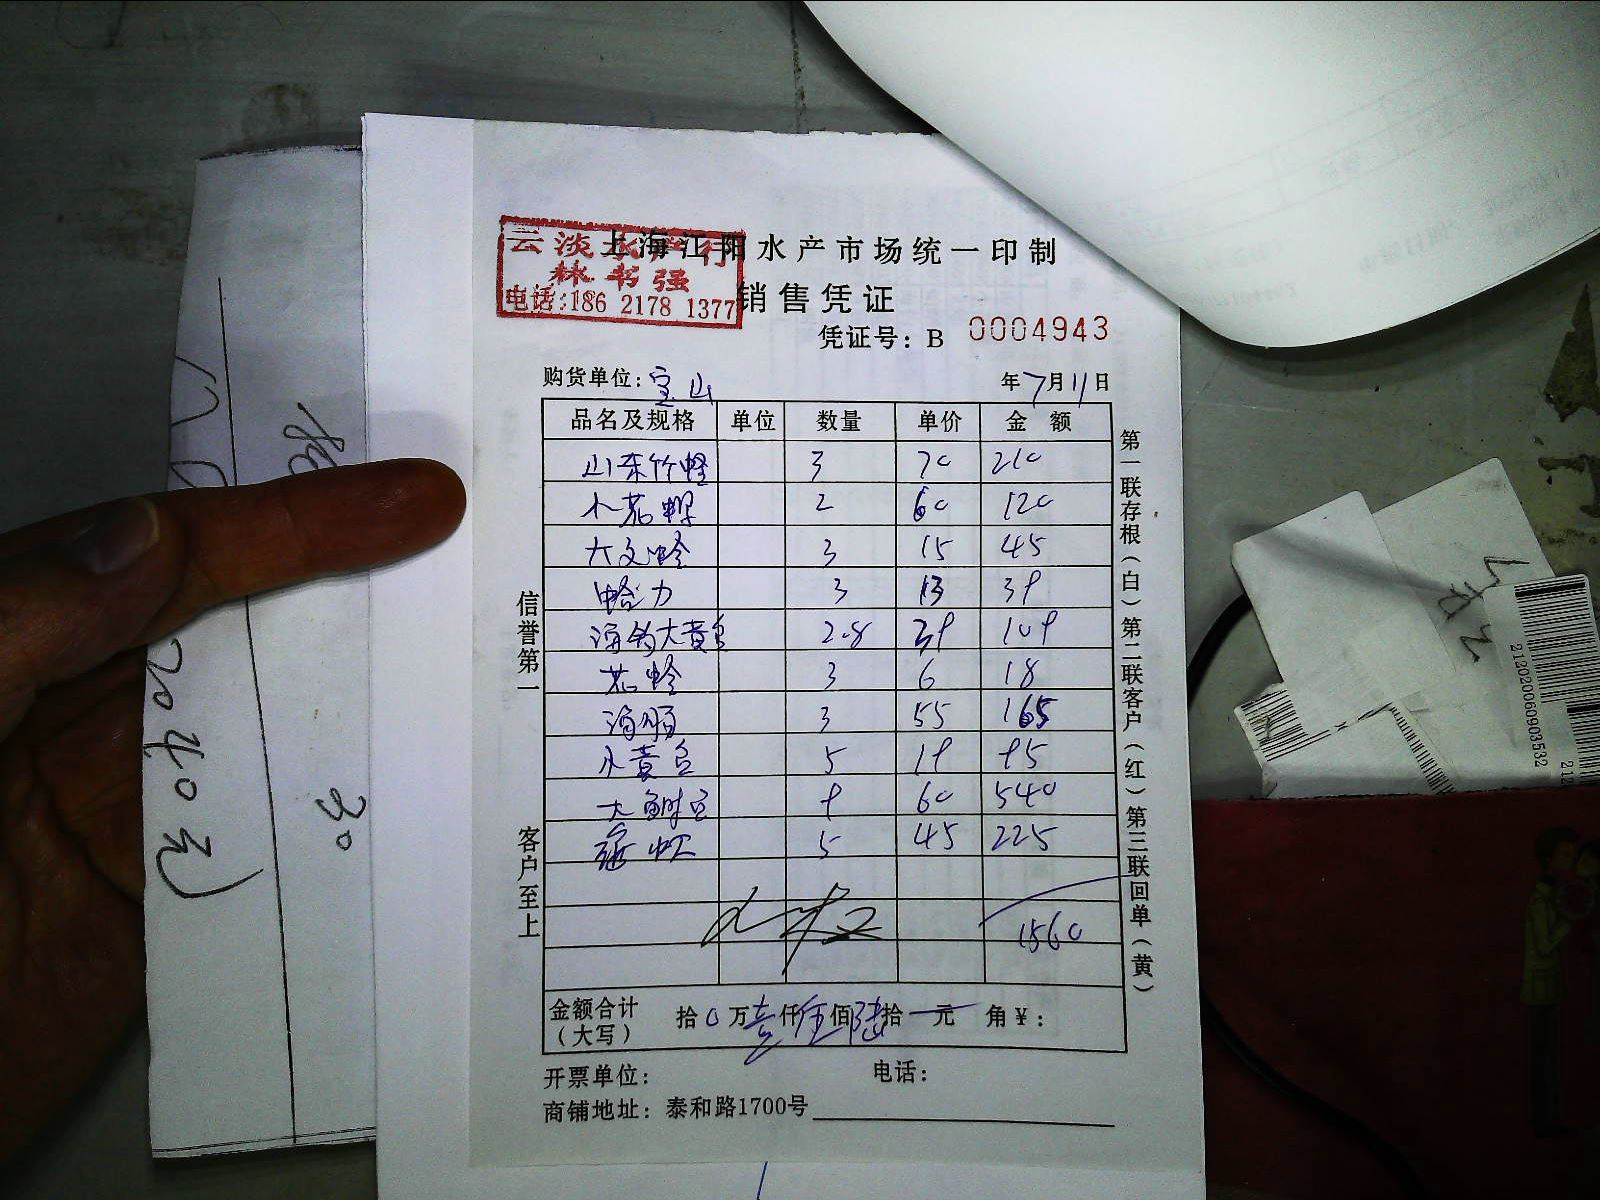 云淡水产行
林书强
电话:186 2178 1377
上海江阳水产市场统一印制
销售凭证
凭证号: B 0004943
购货单位: 宝山 年7月11日
品名及规格 单位 数量 单价 金 额
山东竹蛏 3 70 210
小花螺 2 60 120
大文蛤 3 15 45
蛤力 3 13 39
海钓大黄鱼 2.8 39 109
花蛤 3 6 18
海肠 3 55 165
小黄鱼 5 19 95
大鲥鱼 9 60 540
5 45 225
1560
金额合计
(大写) 拾0万壹仟伍佰陆拾一元 角¥:
开票单位: 电话:
商铺地址: 泰和路1700号
信誉第一
客户至上
第一联存根(白)第二联客户(红)第三联回单(黄)
2040元
30
212020060903532